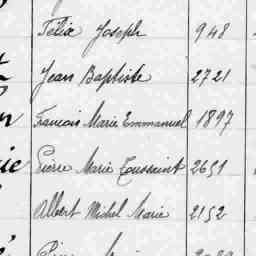 Félix Joseph 948
Jean Baptiste 2721
Francois Marie Emmanuel 1897
Pierre Marie Toussaint 2651
Albert Michel Marie 2152